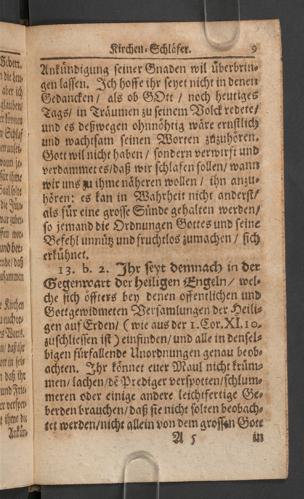 Kirchen-Schläfer. 9
Ankündigung seiner Gnaden wil überbrin-
gen lassen. Ich hoffe ihr seyet nicht in denen
Gedancken / als ob GOtt / noch heutiges
Tags / in Träumen zu seinem Volck redete /
und es deßwegen ohnnöhtig wäre ernstlich
und wachtsam seinen Worten zuzuhören.
Gott wil nicht haben / sondern verwirft und
verdammet es / daß wir schlafen sollen / wann
wir uns zu ihme näheren wollen / ihn anzu-
hören: es kan in Wahrheit nicht anderst /
als für eine grosse Sünde gehalten werden /
so jemand die Ordnungen Gottes und seine
Befehl unnütz und fruchtlos zumachen / sich
erkühnet.
13. b. 2. Ihr seyt demnach in der
Gegenwart der heiligen Engeln / wel-
che sich öffters bey denen offentlichen und
Gottgewidmeten Versamlungen der Heili-
gen auf Erden / ( wie aus der 1. Cor. XI. 10.
zuschliessen ist ) einfinden / und alle in densel-
bigen fürfallende Unordnungen genau beob-
achten. Ihr könnet euer Maul nicht krüm-
men / lachen / dē Prediger verspotten / schlum-
meren oder einige andere leichtfertige Ge-
berden brauchen / daß sie nicht solten beobach-
tet werden / nicht allein von dem grossen Gott
A 5 in